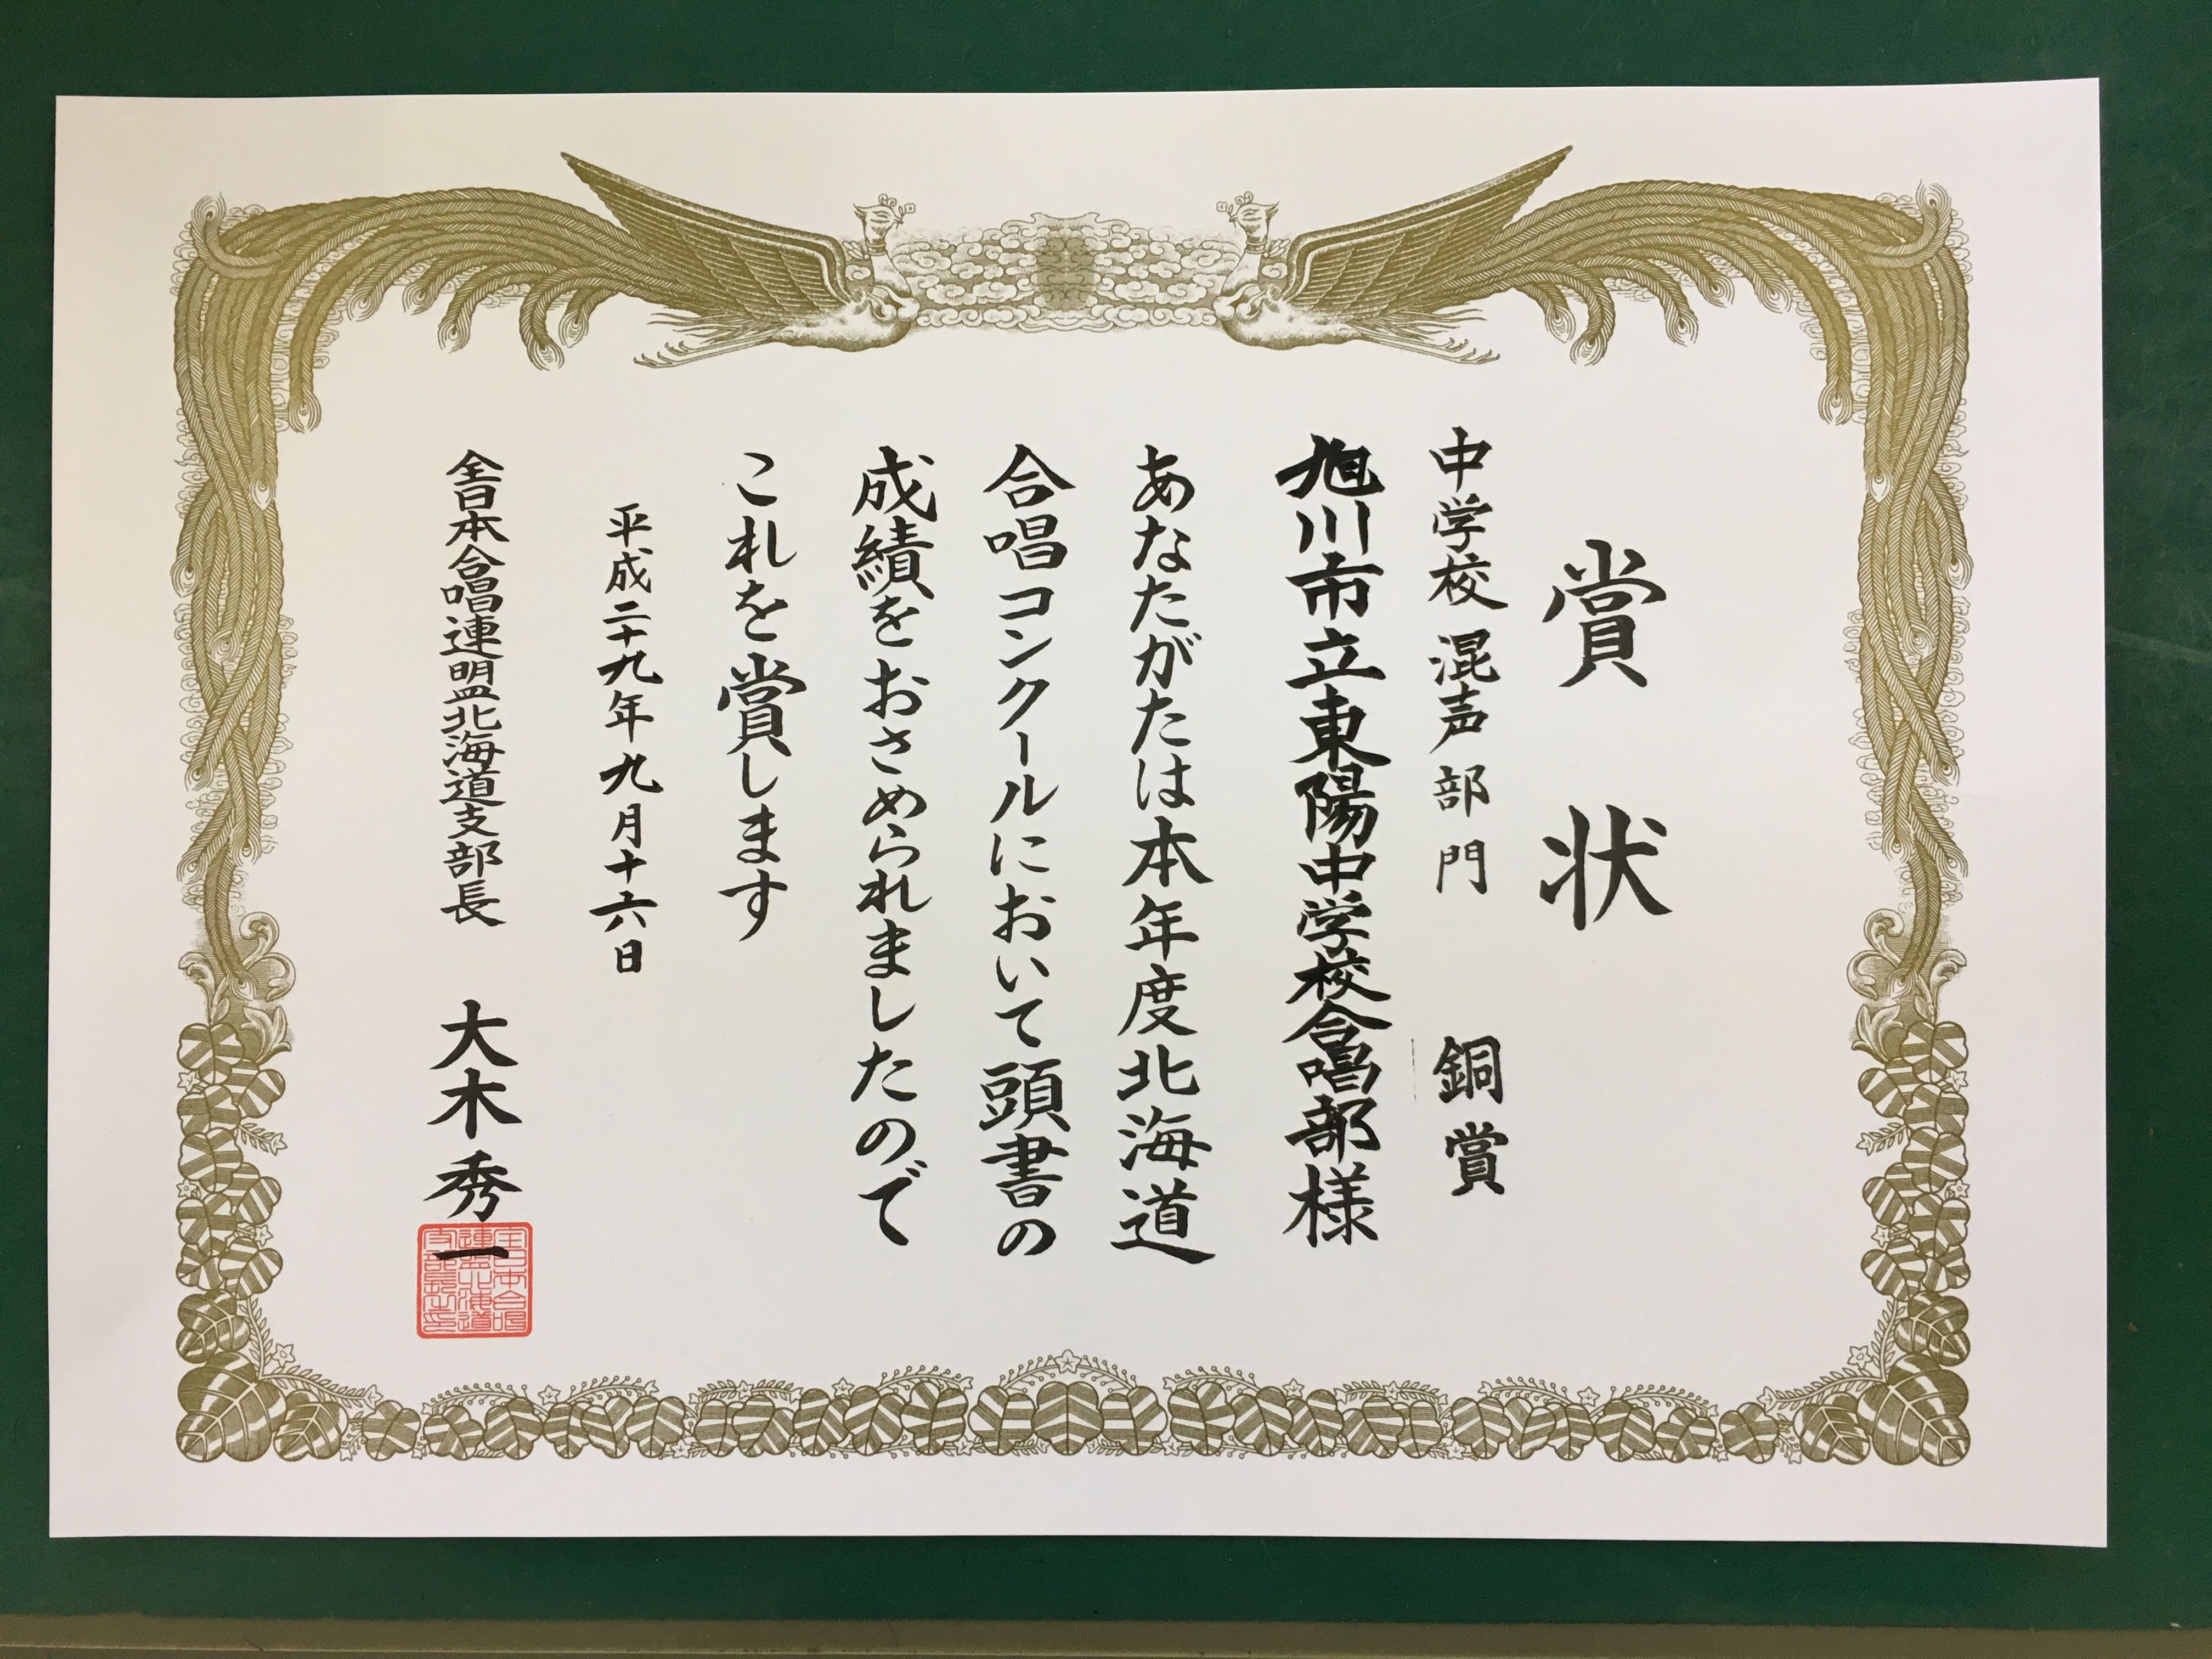 賞状
中学校 混声部門 銅賞
旭川市立東陽中学校合唱部様
あなたがたは本年度北海道
合唱コンクールにおいて頭書の
成績をおさめられましたので
これを賞します
平成二十九年九月十六日
全日本合唱連盟北海道支部長 大木秀一
全日本合唱
連盟北海道
支部長之印